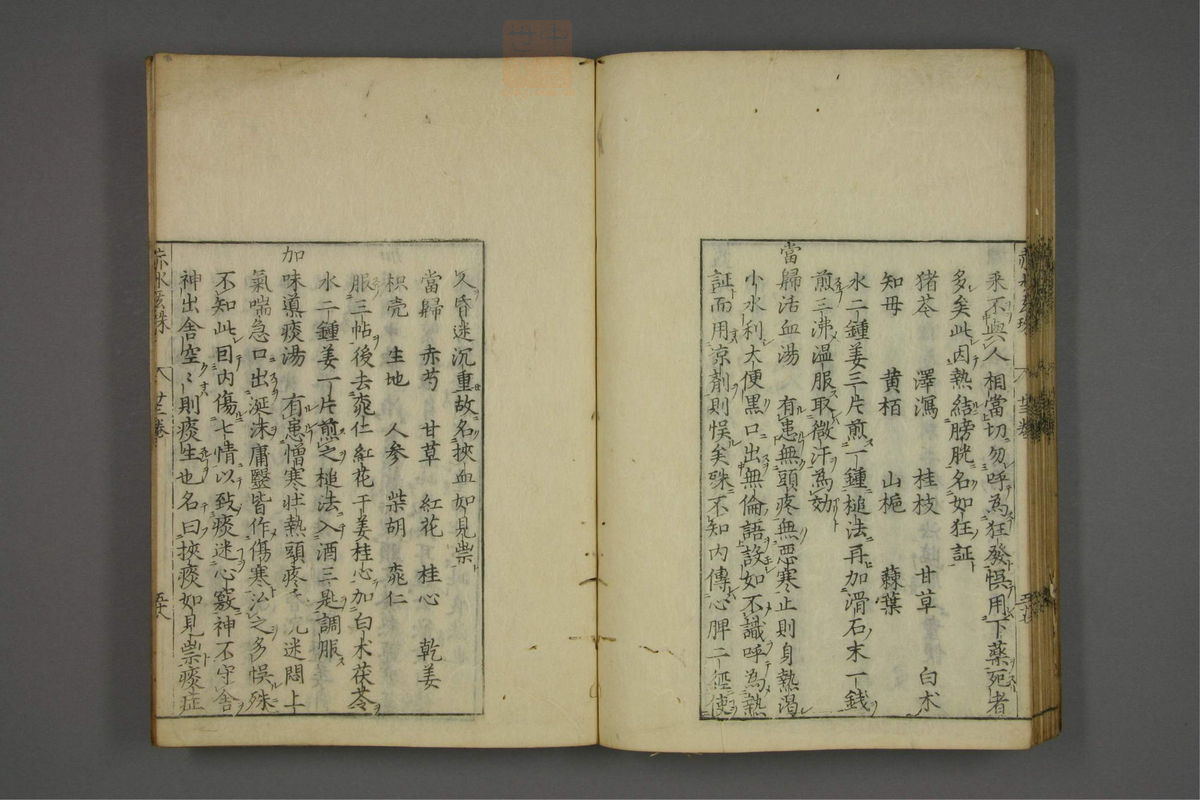 釆不與人相當切勿呼為狂發悞用下藥死者
多矣此因熱結膀胱名如狂証
猪苓 澤瀉 桂枝 甘草 白术
知母 黄栢 山梔 蕀葉
水二鍾姜三片煎一鍾槌法再加滑石末一錢
煎三沸温服取微汗為効
當歸活血湯 有患無頭疼無惡寒止則身熱渴
小水利大便黒口出無倫語設如不識呼為熱
証而用凉剤則悞矣殊不知内傳心脾二經使
赤水玄珠 八 廿三卷
久昏迷沉重故名挾血如見祟
當歸 赤芍 甘草 紅花 桂心 乾姜
枳壳 生地 人参 柴胡 桃仁
服三帖後去桃仁紅花干姜桂心加白术茯苓
水二鍾姜一片煎之槌法入酒三匙調服
加味導痰湯 有患憎寒壮熱頭疼昏迷悶上
氣喘急口出涎沫庸醫皆作傷寒治之多悞殊
不知此因内傷七情以致痰迷心竅神不守舍
神出舍空〻則痰生也名曰挾痰如見祟痰症
赤水玄珠 八 廿三卷 五十六